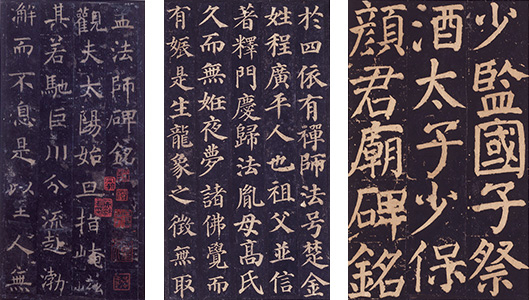 孟法師碑銘
觀夫太陽始旦指崦嵫
其若馳巨川分流趍渤
澥而不息是以至人無
於四依有禪師法号楚金
姓程廣平人也祖父並信
著釋門慶歸法胤母高氏
久而無妊夜夢諸佛覺而
有娠是生龍象之徵無取
少監國子祭
酒太子少保
顏君廟碑銘